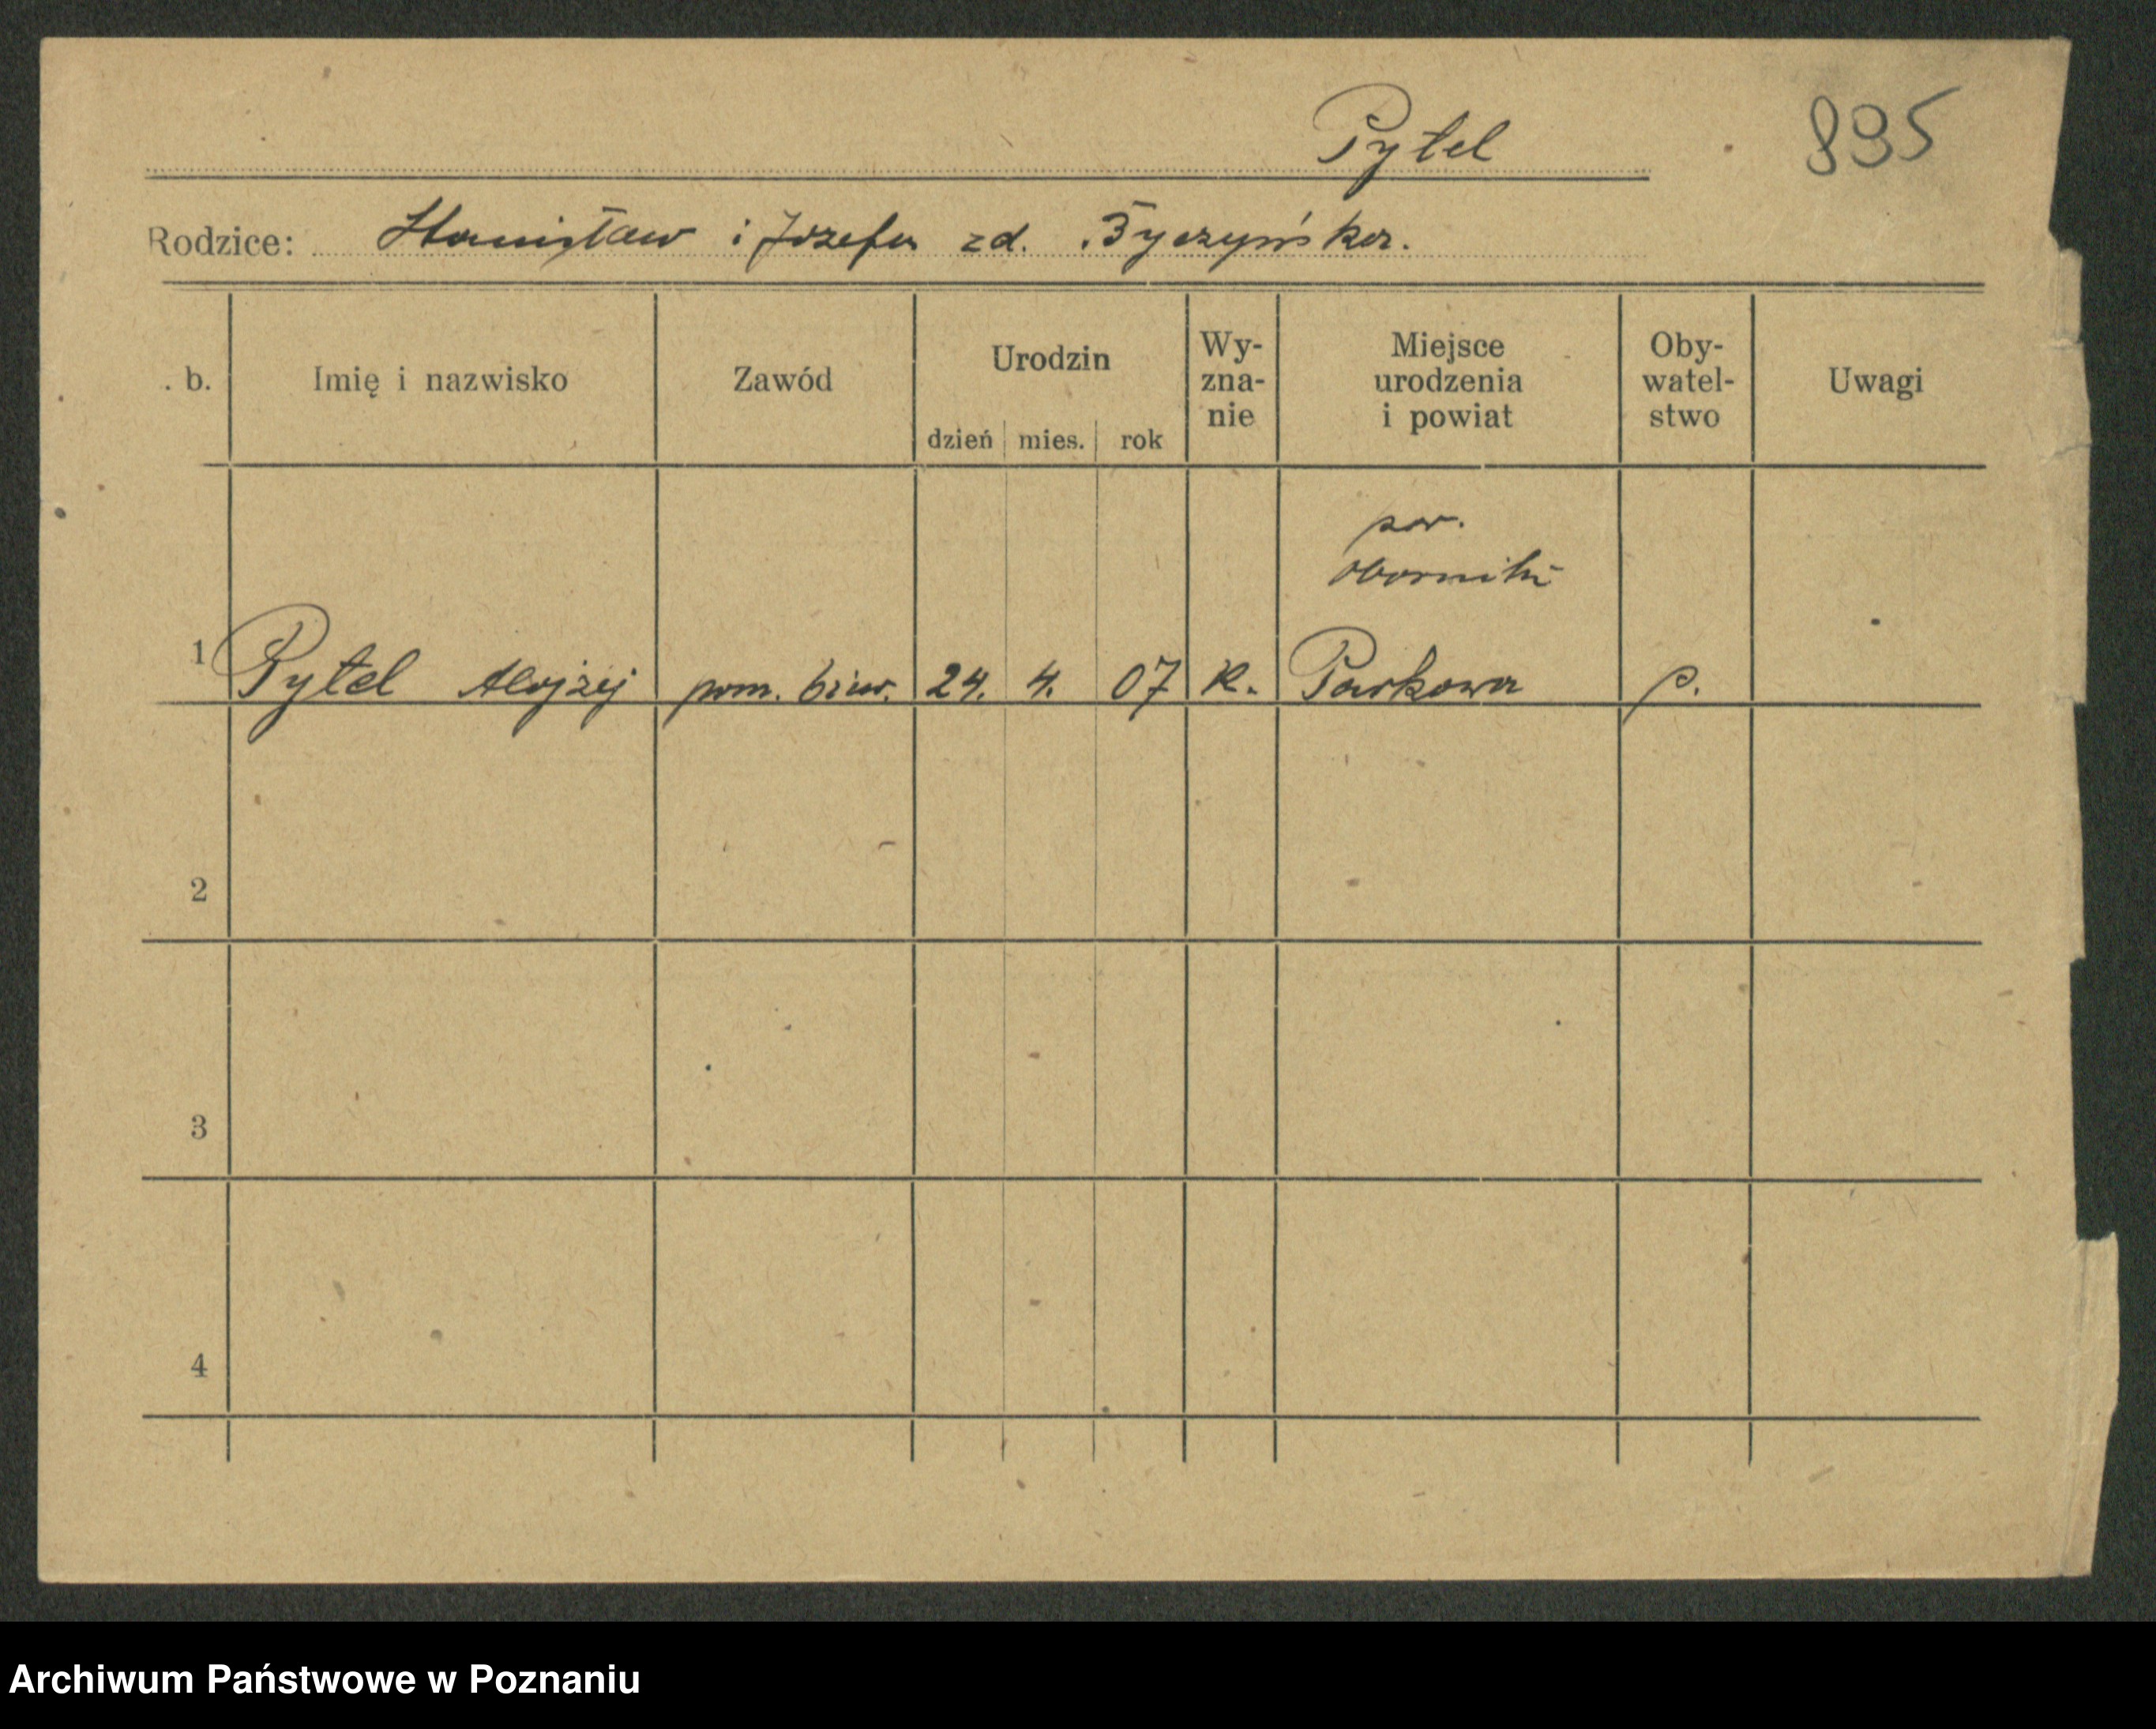 Pytel
895
Rodzice: Stanisław i Józefa zd. Byczyńska.
. b.
Imię i nazwisko
Zawód
Urodzin
dzień mies. rok
Wy-
zna-
nie
Miejsce
urodzenia
i powiat
Oby-
watel-
stwo
Uwagi
pow.
Oborniki
1 Pytel Alojzej pom. biur. 24. 4. 07 K. Parkowa p.
2
3
4
Archiwum Państwowe w Poznaniu